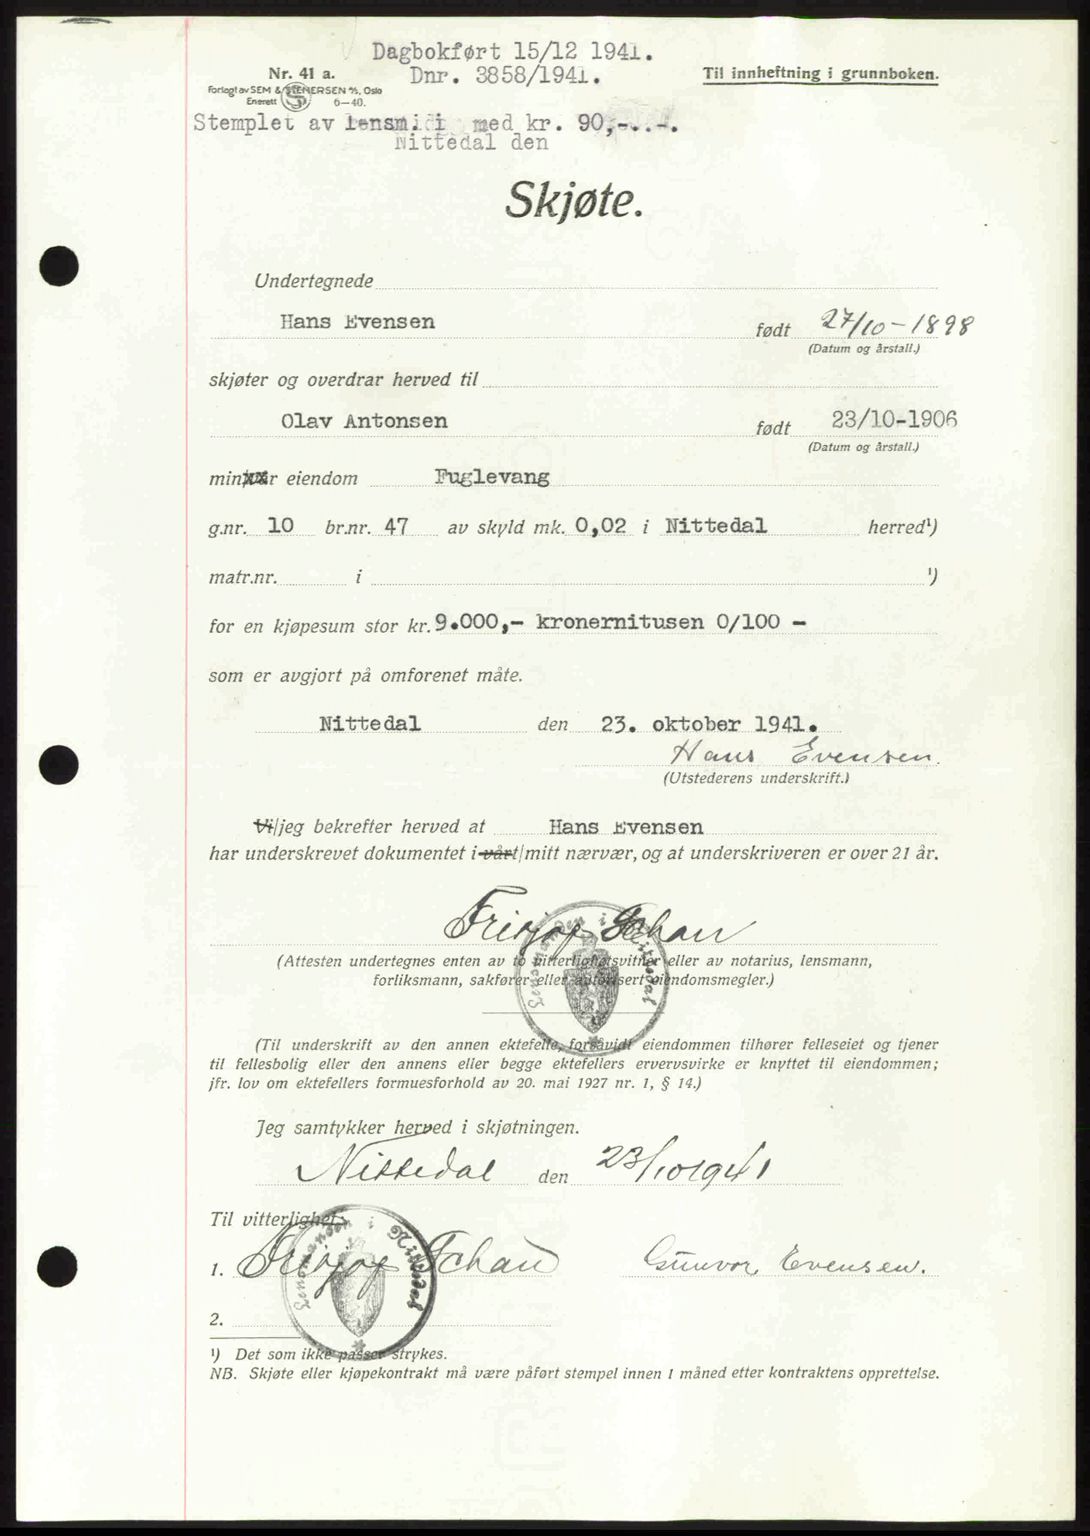 Dagbokført 15/12 1941.
Nr. 41 a. Dnr. 3858/1941. Til innheftning i grunnboken.
Forlagt av SEM & STENERSEN A/S, Oslo
Enerett 6-40.
Stemplet av lensm. i med kr. 90,-..-.
Nittedal den
Skjøte.
Undertegnede
Hans Evensen født 27/10-1898
(Datum og årstall.)
skjøter og overdrar herved til
Olav Antonsen født 23/10-1906
(Datum og årstall.)
min xx r eiendom Fuglevang
g.nr. 10 br.nr. 47 av skyld mk. 0,02 i Nittedal herred¹)
matr.nr. i ¹)
for en kjøpesum stor kr. 9.000,- kronernitusen 0/100 -
som er avgjort på omforenet måte.
Nittedal den 23. oktober 1941.
Hans Evensen.
(Utstederens underskrift.)
Vi/jeg bekrefter herved at Hans Evensen
har underskrevet dokumentet i vårt/mitt nærvær, og at underskriveren er over 21 år.
Schau
Lensmannen i Nittedal
(Attesten undertegnes enten av to vitterlighetsvitner eller av notarius, lensmann,
forliksmann, sakfører eller autorisert eiendomsmegler.)
(Til underskrift av den annen ektefelle, forsåvidt eiendommen tilhører felleseiet og tjener
til fellesbolig eller den annens eller begge ektefellers ervervsvirke er knyttet til eiendommen;
jfr. lov om ektefellers formuesforhold av 20. mai 1927 nr. 1, § 14.)
Jeg samtykker herved i skjøtningen.
Nittedal den 23/10 1941
Til vitterlighet:
Lensmannen i Nittedal
1. Schau Gunvor Evensen.
2.
¹) Det som ikke passer strykes.
NB. Skjøte eller kjøpekontrakt må være påført stempel innen 1 måned etter kontraktens opprettelse.